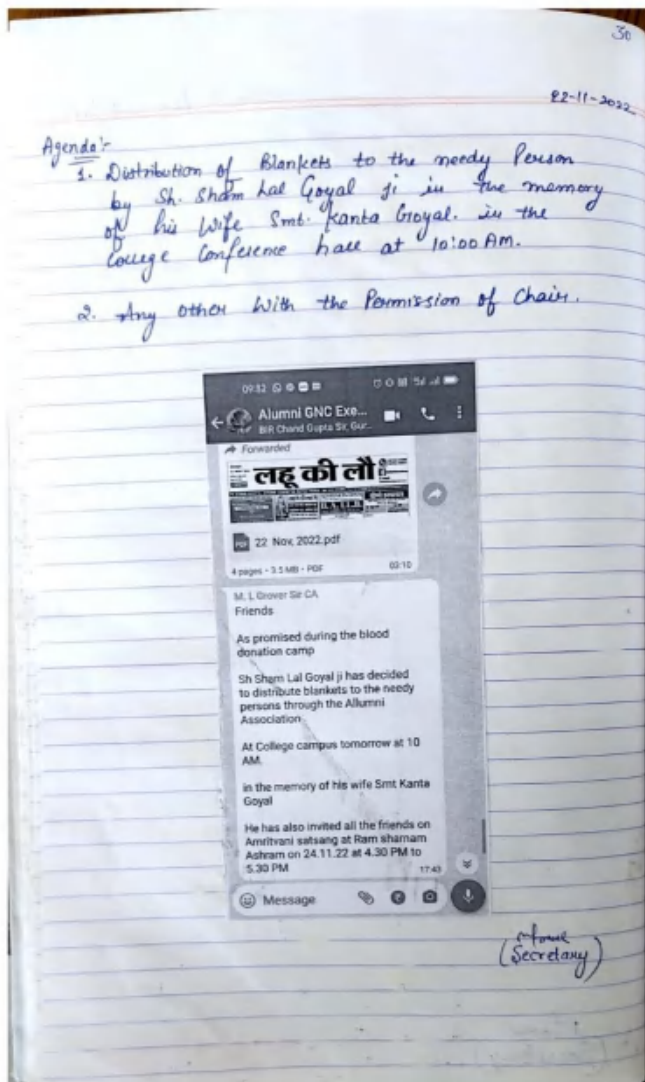 30
22-11-2022
Agenda:-
1. Distribution of Blankets to the needy Person
by Sh. Sham Lal Goyal ji in the memory
of his Wife Smt. Kanta Goyal. in the
College Conference hall at 10:00 AM.
2. Any other With the Permission of Chair.
09:32
Alumni GNC Exe...
BIR Chand Gupta Sir, Gur...
Forwarded
लहू की लौ
PDF
22 Nov, 2022.pdf
4 pages • 3.5 MB • PDF
03:10
M. L Grover Sir CA
Friends
As promised during the blood
donation camp
Sh Sham Lal Goyal ji has decided
to distribute blankets to the needy
persons through the Allumni
Association
At College campus tomorrow at 10
AM.
in the memory of his wife Smt Kanta
Goyal
He has also invited all the friends on
Amritvani satsang at Ram sharnam
Ashram on 24.11.22 at 4.30 PM to
5.30 PM
17:43
Message
(Secretary)